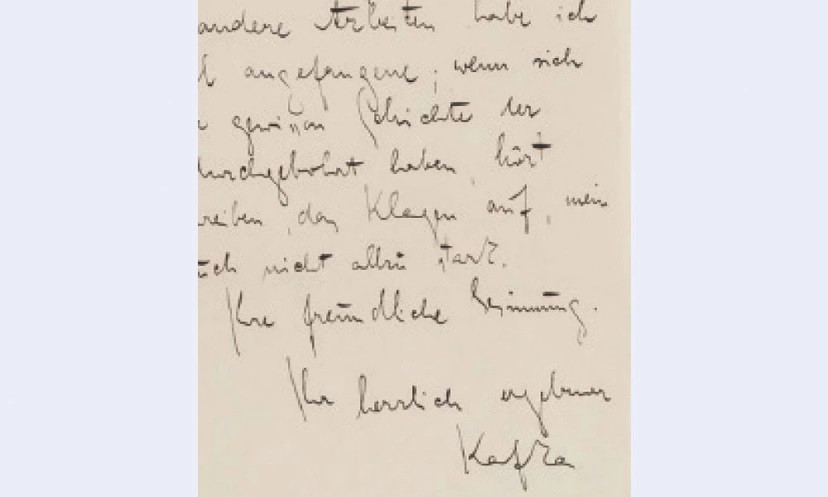 andere Arbeiten habe ich
angefangene; wenn sich
gewissen Schichte der
durchgebohrt haben, hört
reiben, das Klagen auf, mein
nicht allzu stark.
Ihre freundliche Gesinnung.
Ihr herzlich ergebener
Kafka